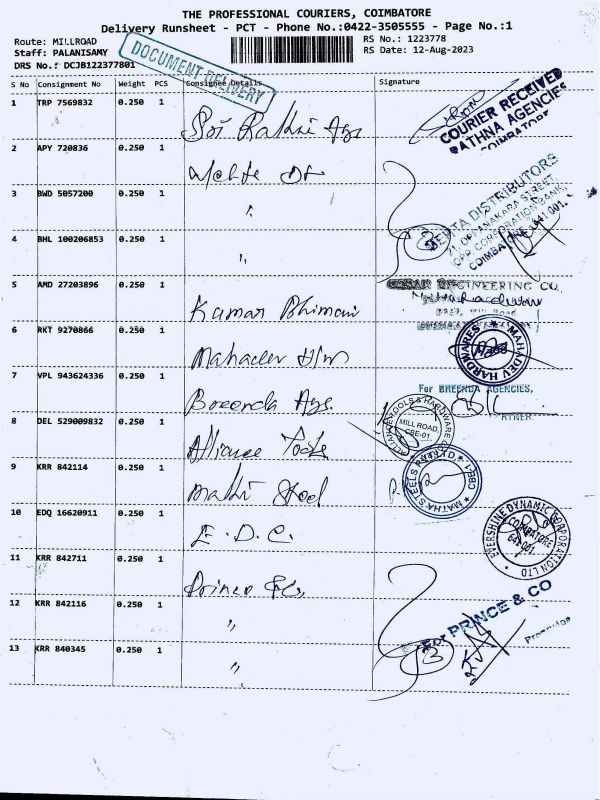 THE PROFESSIONAL COURIERS, COIMBATORE
Delivery Runsheet - PCT - Phone No.:0422-3505555 - Page No.:1
Route: MILLROAD
RS No.: 1223778
Staff: PALANISAMY
RS Date: 12-Aug-2023
DRS No.: DCJB122377801
DOCUMENT DELIVERY
S No Consignment No Weight PCS Consignee Details Signature
1 TRP 7569832 0.250 1
COURIER RECEIVED
RATHNA AGENCIES
COIMBATORE
2 APY 720836 0.250 1
3 BWD 5057200 0.250 1 "
MEHTA DISTRIBUTORS
71, OPPANAKARA STREET,
OPP. CORPORATION BANK,
COIMBATORE-641 001.
4 BHL 100206853 0.250 1 "
5 AMD 27203896 0.250 1 Kumar Bhimani
ENGINEERING CO.
6 RKT 9270866 0.250 1 Mahadev H/W
MAHADEV HARDWARES
7 VPL 943624336 0.250 1 Breenda Ags.
For BREENDA AGENCIES,
8 DEL 529009832 0.250 1 Alliance Tools
ALLIANCE TOOLS & HARDWARE
MILL ROAD,
CBE-01.
9 KRR 842114 0.250 1
MATHA STEELS
10 EDQ 16620911 0.250 1 E.D.C.
EVERSHINE DYNAMIC CORPORATION LTD
COIMBATORE
641 001
11 KRR 842711 0.250 1
12 KRR 842116 0.250 1 "
For PRINCE & CO
Proprietor
13 KRR 840345 0.250 1 "